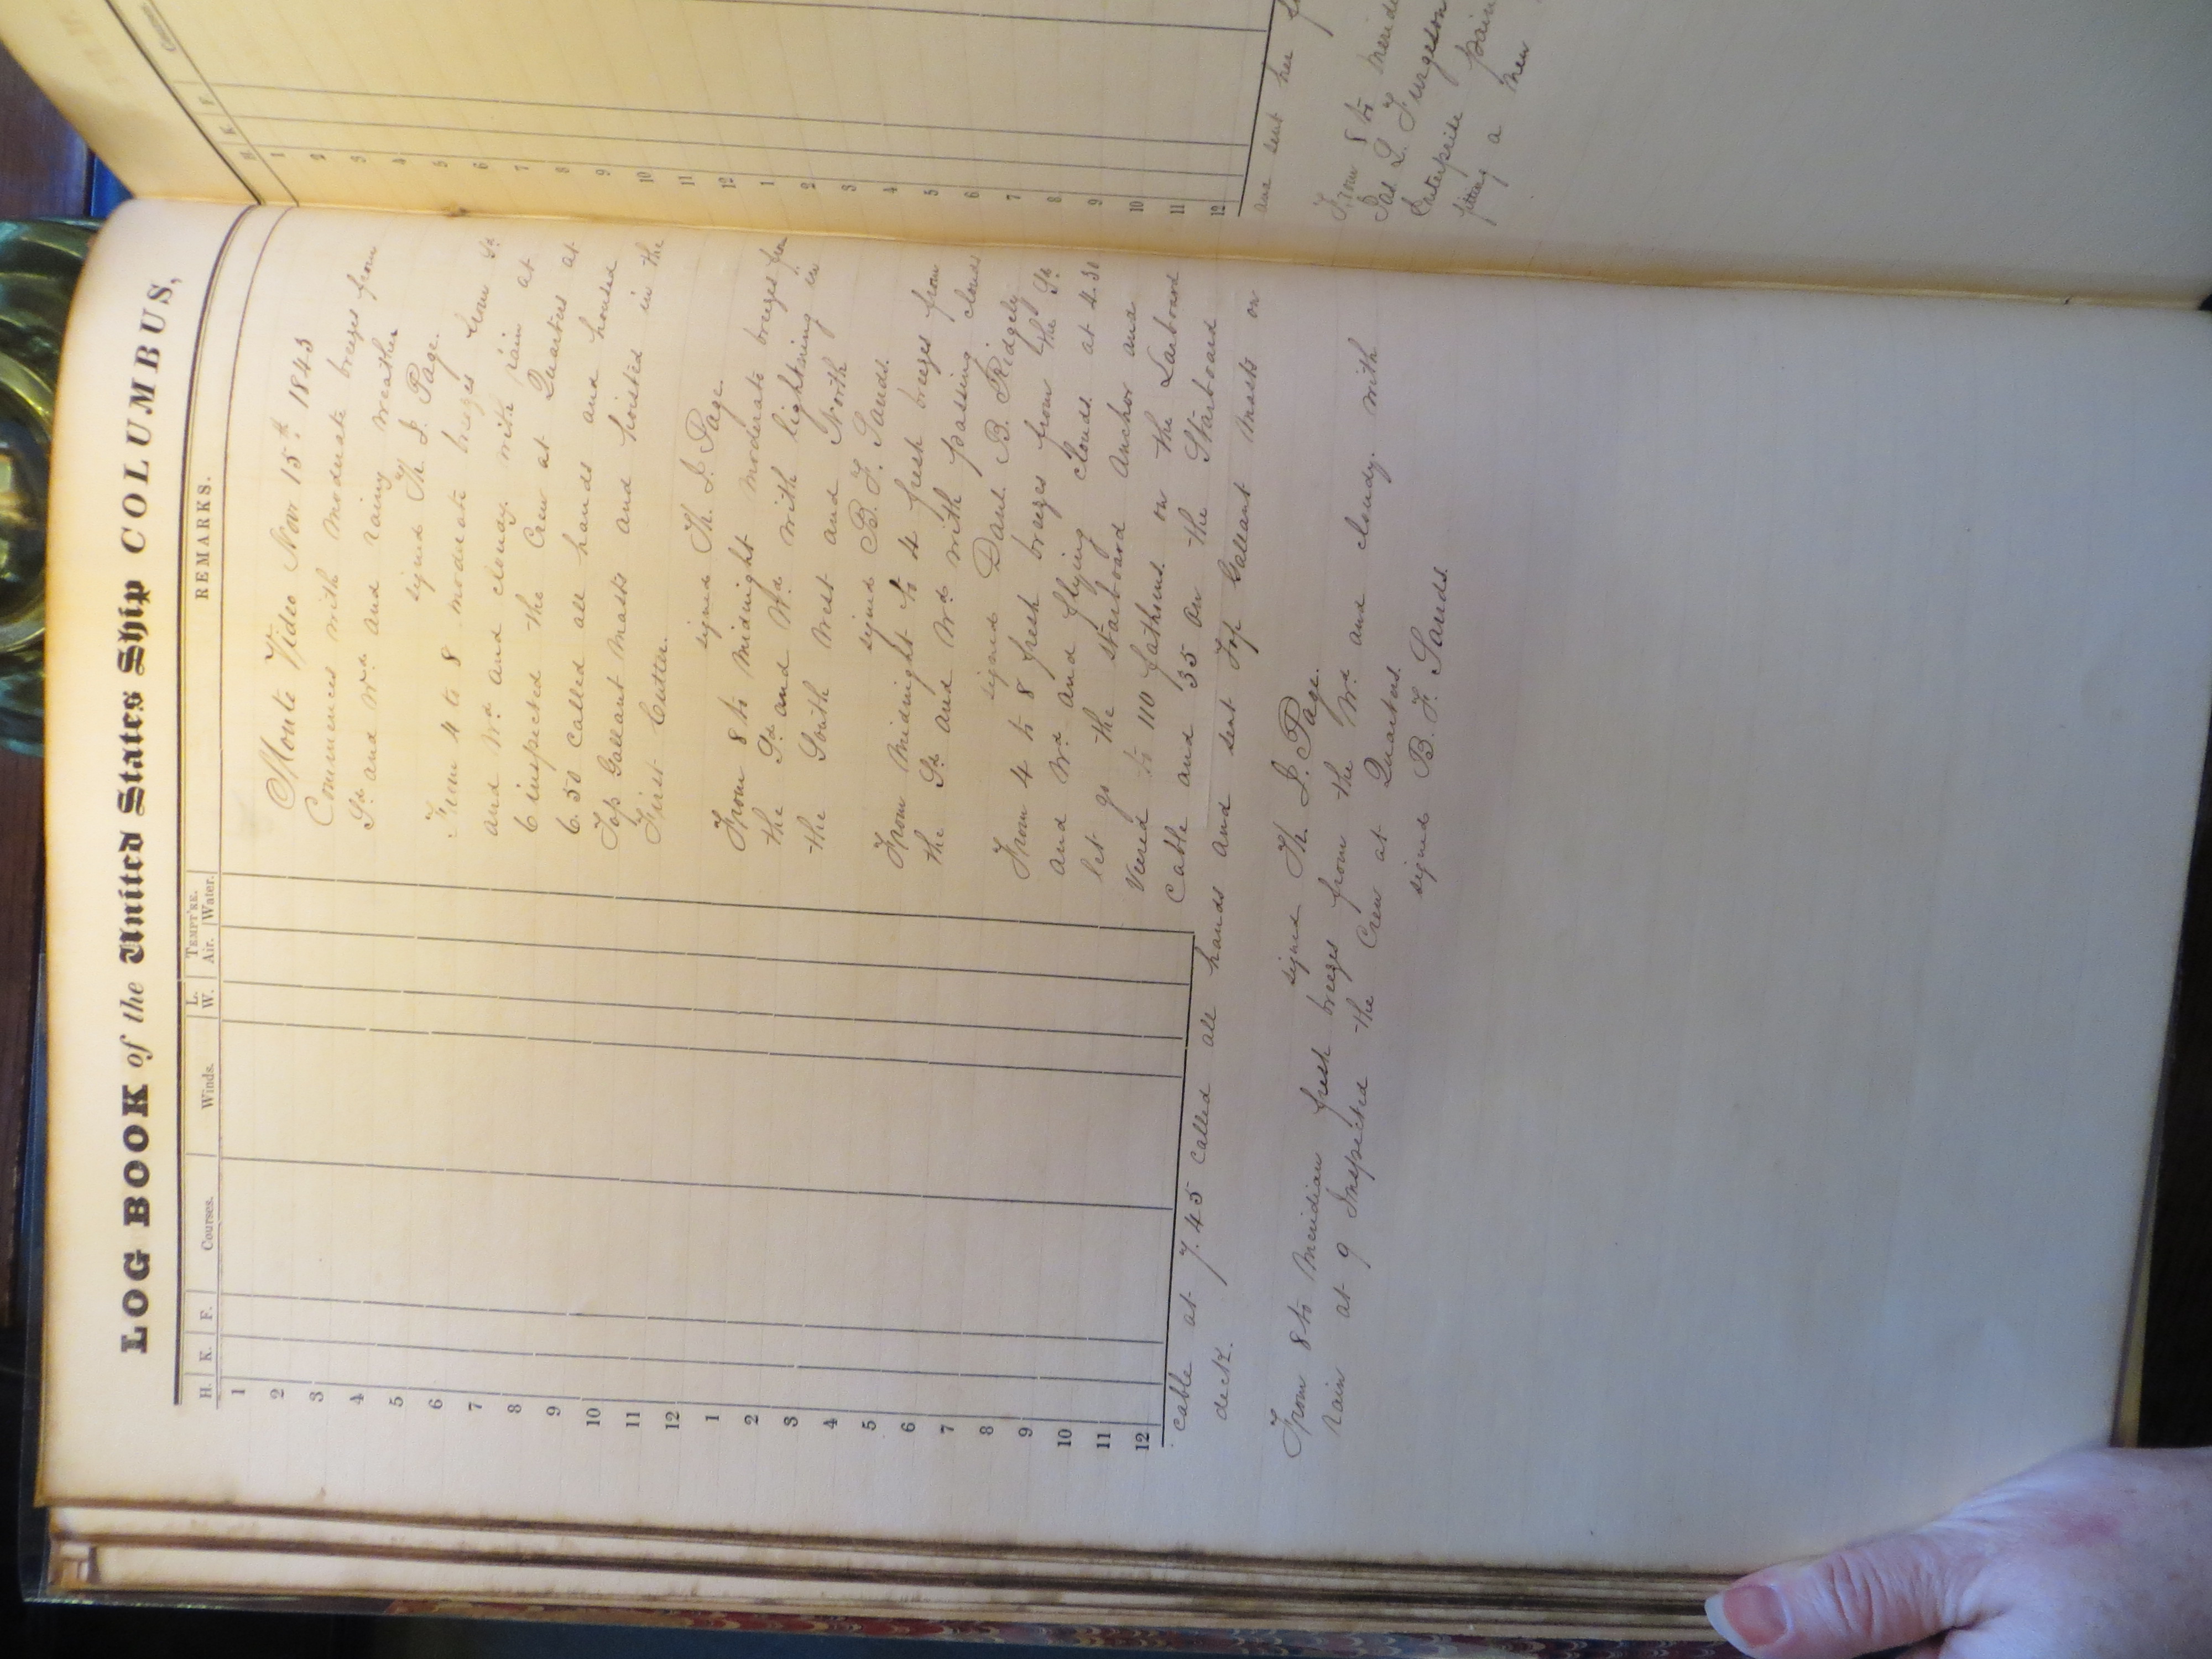 LOG BOOK of the United States Ship COLUMBUS,
H. K. F. Courses. Winds. L. W. TEMPT'RE. Air. Water. REMARKS.
1
2
3
4
5
6
7
8
9
10
11
12
1
2
3
4
5
6
7
8
9
10
11
12
Monte Video Nov 15th 1843
Commences with moderate breezes from
Sd and Wd and rainy weather
signed Th. J. Page.
From 4 to 8 moderate breezes from Sd
and Wd and cloudy with rain at
6 inspected the Crew at Quarters at
6.50 called all hands and housed
Top Gallant Masts and hoisted in the
First Cutter.
signed Th. J. Page.
From 8 to Midnight moderate breezes from
the Sd and Wd with lightning in
the South West and North
signed B. F. Sands.
From Midnight to 4 fresh breezes from
the Sd and Wd with passing clouds
signed Danl. B. Ridgely
From 4 to 8 fresh breezes from the Sd
and Wd and flying clouds at 4.30
let go the starboard Anchor and
Veered to 110 fathoms on the Larboard
Cable and 35 on the Starboard
cable at 7.45 called all hands and sent Top Gallant Masts on
deck.
signed Th. J. Page.
From 8 to Meridian fresh breezes from the Wd and cloudy with
rain at 9 Inspected the Crew at Quarters.
signed B. F. Sands.
Courses
H. K. F.
1
2
3
4
5
6
7
8
9
10
11
12
1
2
3
4
5
6
7
8
9
10
11
12
and sent her
From 8 to Merid
Jas L. Furgeson
Enterprise
fitting a new